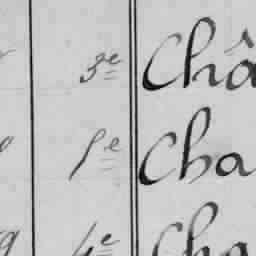 3e Châ
1e Cha
4e Cha